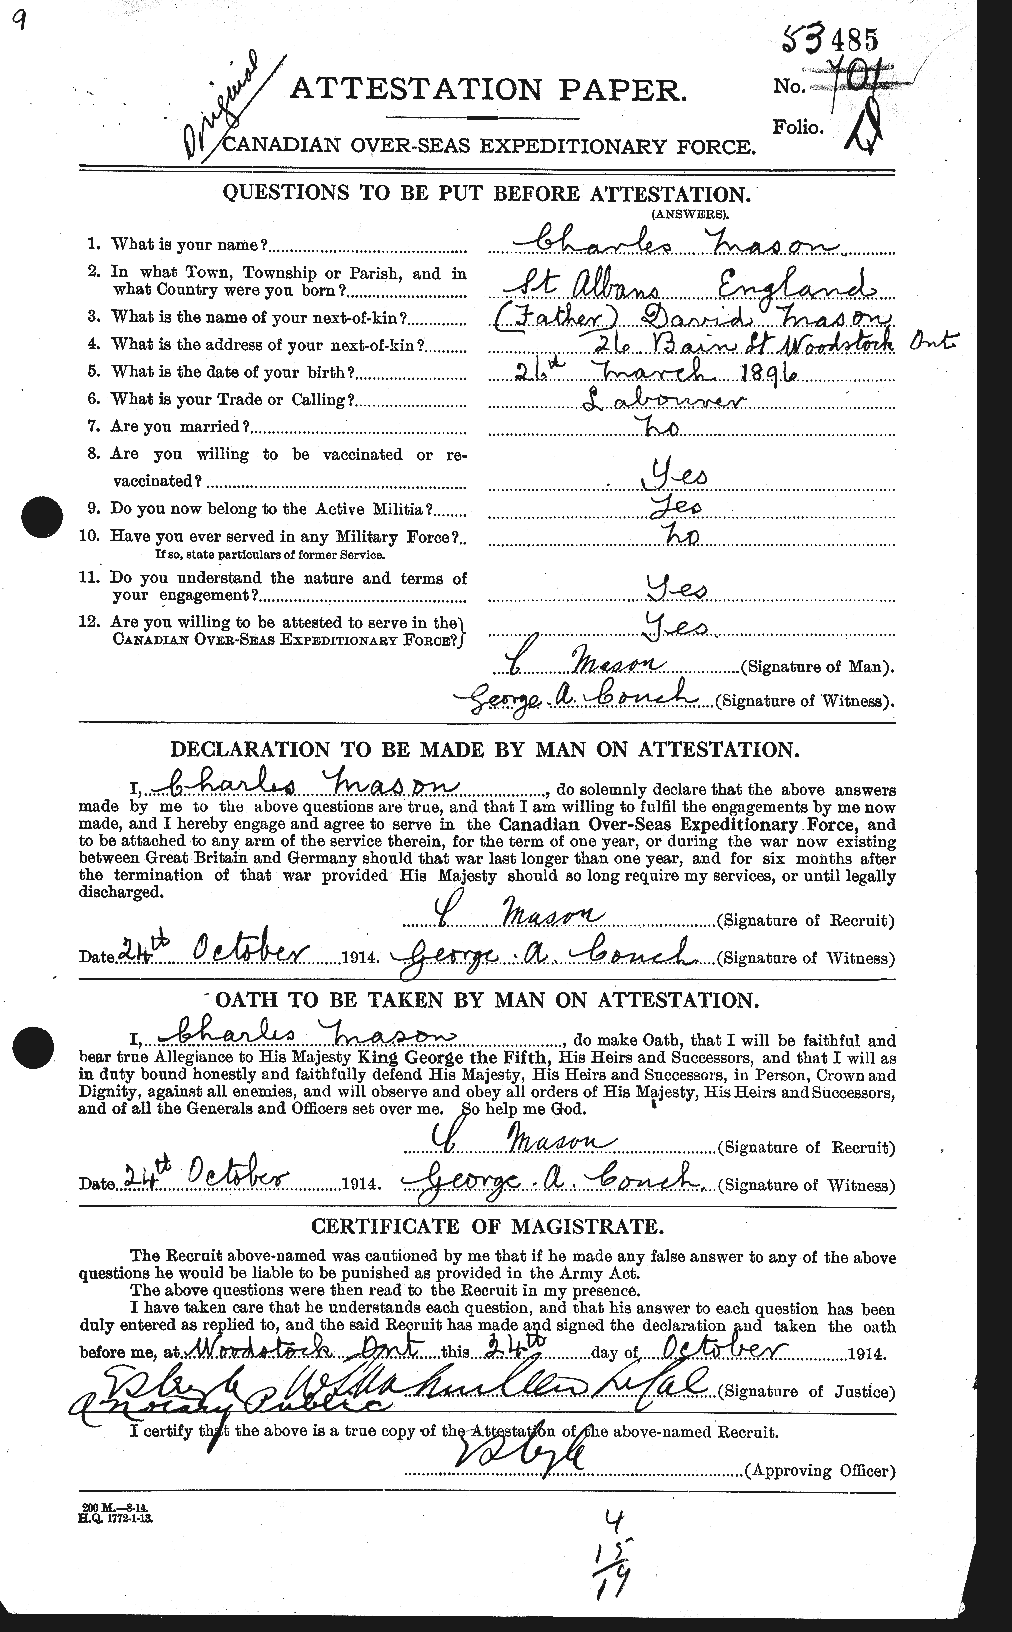 9
53485
Original
ATTESTATION PAPER.
No. 701
Folio. D
CANADIAN OVER-SEAS EXPEDITIONARY FORCE.
QUESTIONS TO BE PUT BEFORE ATTESTATION.
(ANSWERS).
1. What is your name? Charles Mason
2. In what Town, Township or Parish, and in
what Country were you born? St Albans England
3. What is the name of your next-of-kin? (Father) David Mason
4. What is the address of your next-of-kin? 26 Bain St Woodstock Ont
5. What is the date of your birth? 26th March 1896
6. What is your Trade or Calling? Labourer
7. Are you married? No
8. Are you willing to be vaccinated or re-
vaccinated? Yes
9. Do you now belong to the Active Militia? Yes
10. Have you ever served in any Military Force? No
If so, state particulars of former Service.
11. Do you understand the nature and terms of
your engagement? Yes
12. Are you willing to be attested to serve in the
CANADIAN OVER-SEAS EXPEDITIONARY FORCE? Yes
C Mason (Signature of Man).
George A. Couch (Signature of Witness).
DECLARATION TO BE MADE BY MAN ON ATTESTATION.
I, Charles Mason, do solemnly declare that the above answers
made by me to the above questions are true, and that I am willing to fulfil the engagements by me now
made, and I hereby engage and agree to serve in the Canadian Over-Seas Expeditionary Force, and
to be attached to any arm of the service therein, for the term of one year, or during the war now existing
between Great Britain and Germany should that war last longer than one year, and for six months after
the termination of that war provided His Majesty should so long require my services, or until legally
discharged.
C Mason (Signature of Recruit)
Date 24th October 1914. George A. Couch (Signature of Witness)
OATH TO BE TAKEN BY MAN ON ATTESTATION.
I, Charles Mason, do make Oath, that I will be faithful and
bear true Allegiance to His Majesty King George the Fifth, His Heirs and Successors, and that I will as
in duty bound honestly and faithfully defend His Majesty, His Heirs and Successors, in Person, Crown and
Dignity, against all enemies, and will observe and obey all orders of His Majesty, His Heirs and Successors,
and of all the Generals and Officers set over me. So help me God.
C Mason (Signature of Recruit)
Date 24th October 1914. George A. Couch (Signature of Witness)
CERTIFICATE OF MAGISTRATE.
The Recruit above-named was cautioned by me that if he made any false answer to any of the above
questions he would be liable to be punished as provided in the Army Act.
The above questions were then read to the Recruit in my presence.
I have taken care that he understands each question, and that his answer to each question has been
duly entered as replied to, and the said Recruit has made and signed the declaration and taken the oath
before me, at Woodstock Ont this 24th day of October 1914.
(Signature of Justice)
A Notary Public
I certify that the above is a true copy of the Attestation of the above-named Recruit.
(Approving Officer)
200 M.—8-14.
H.Q. 1772-1-13.
4
15
19